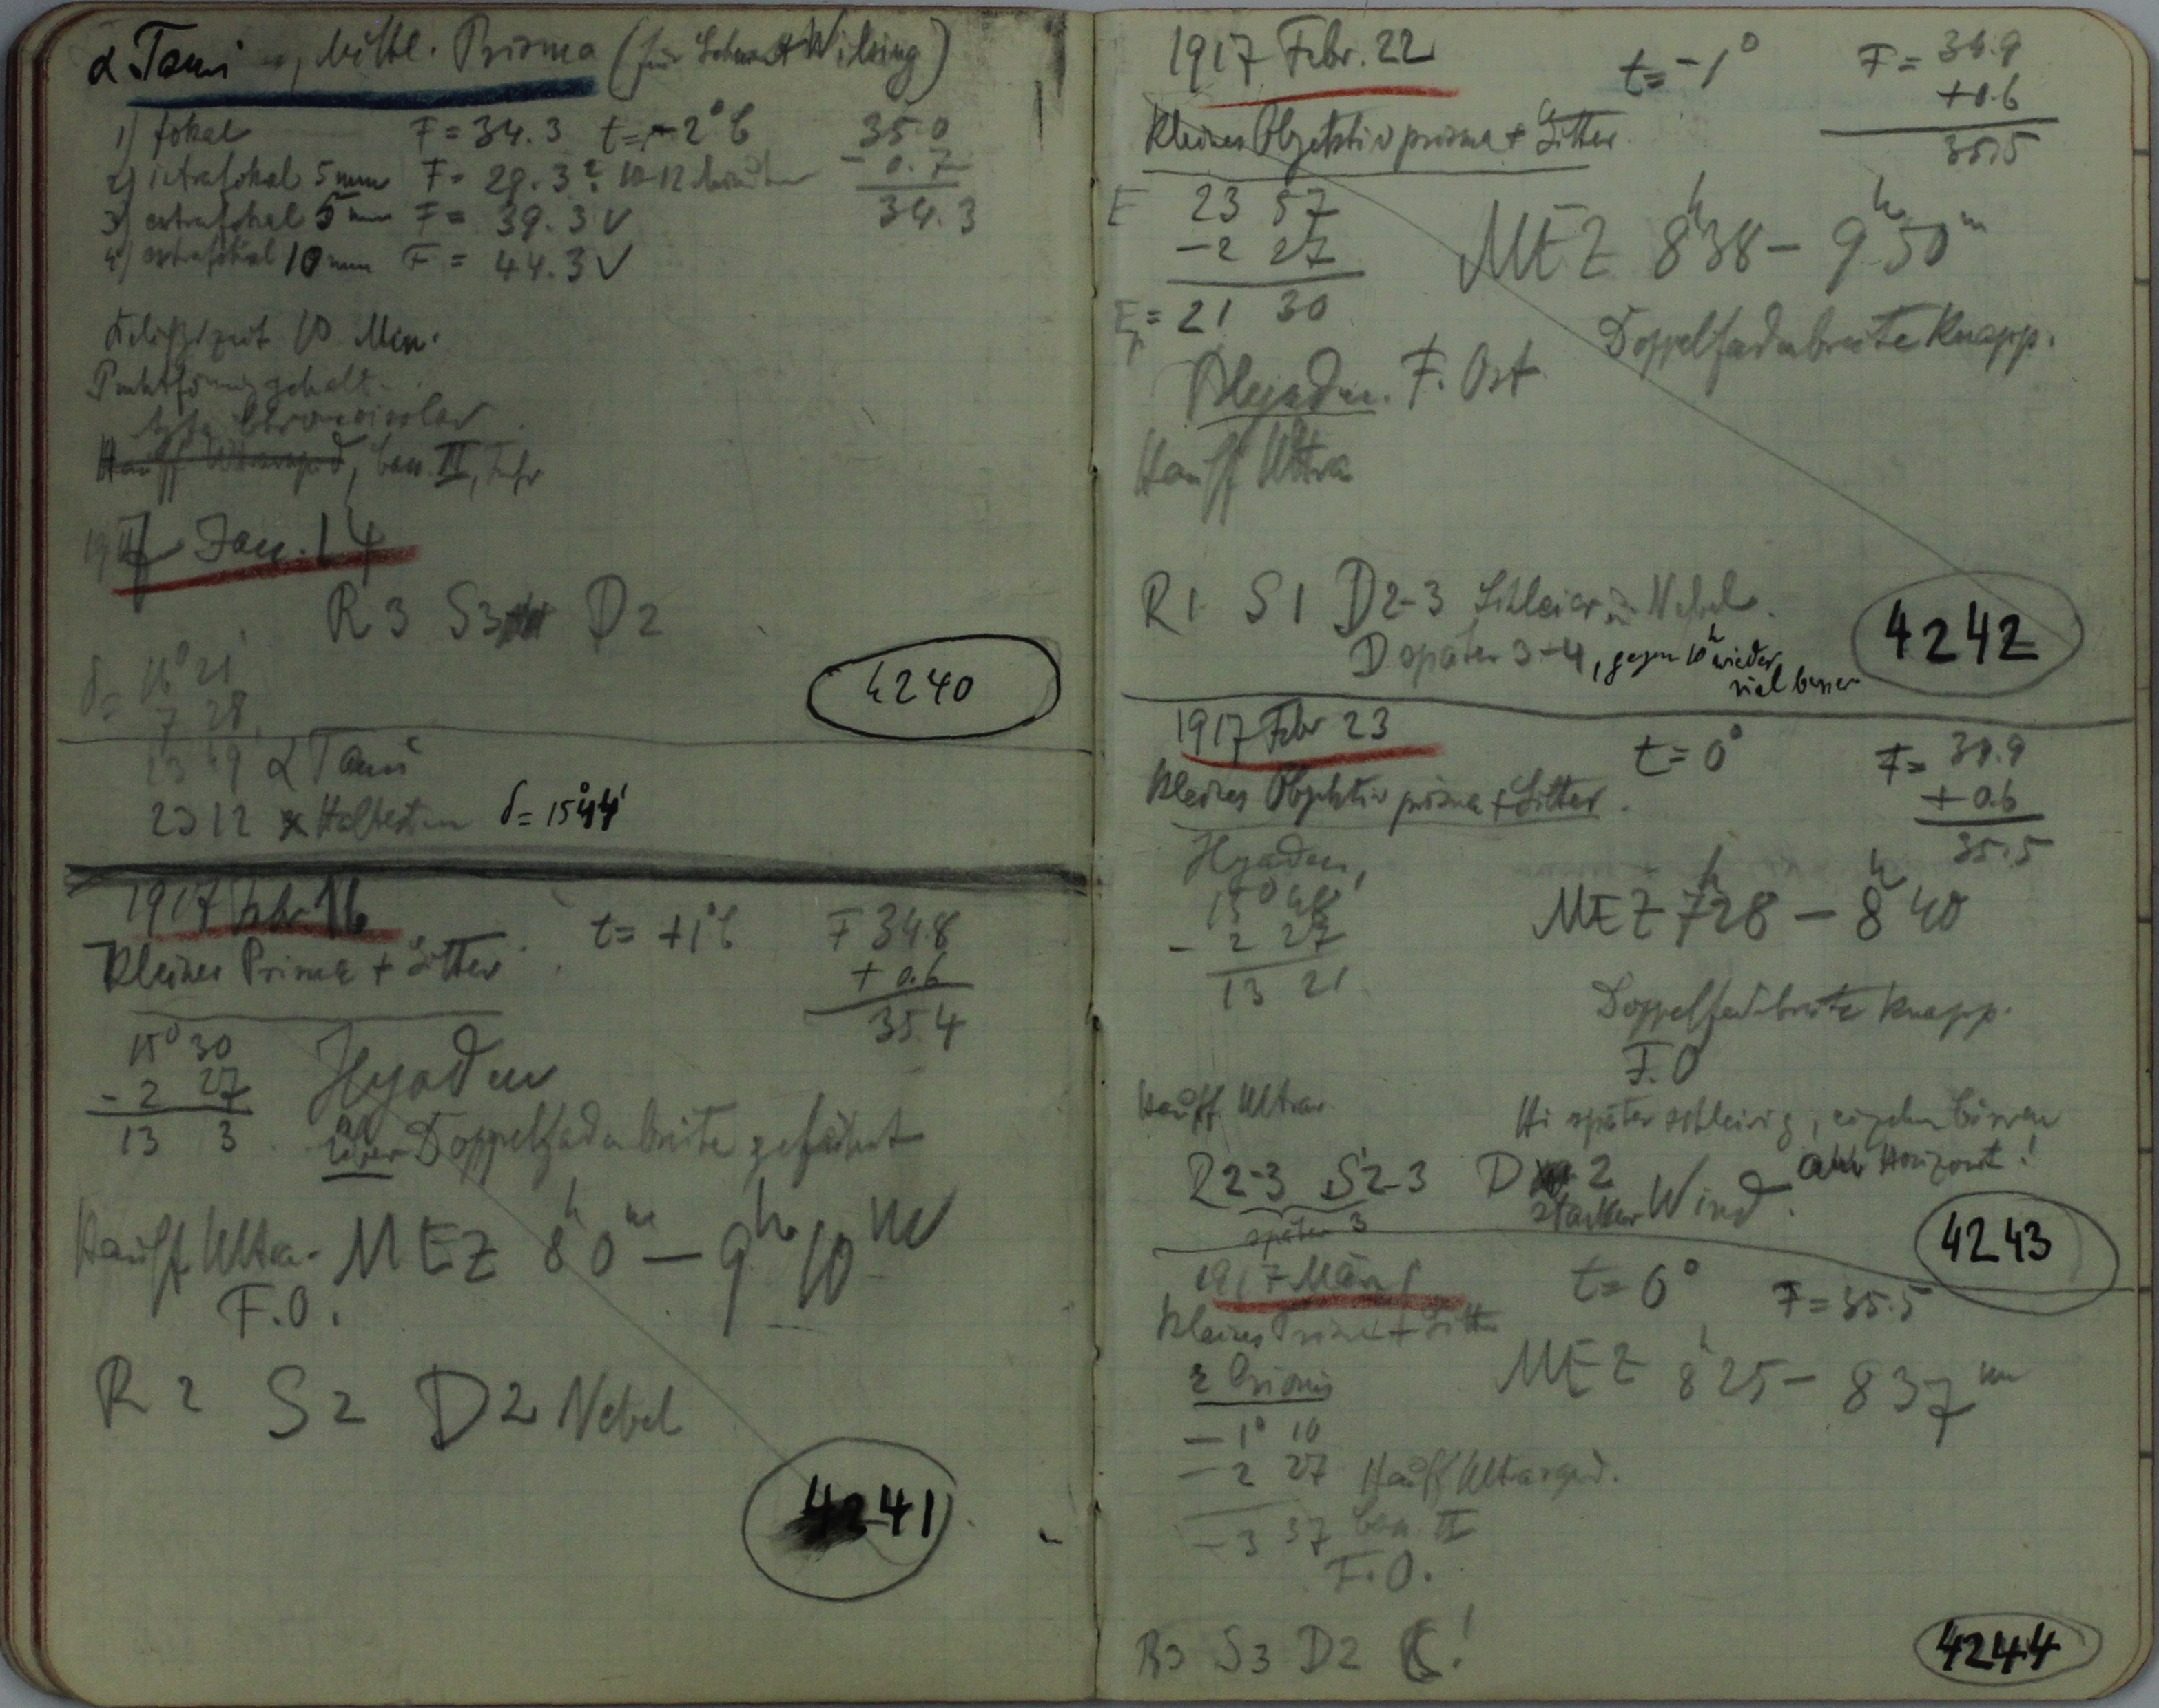 α Tauri, Mittl. Prisma (für Wilsing)
1) fokal F = 34.3 t = -2° C 35.0
2) intrafokal 5 mm F = 29.3 ? 10-12 - 0.7
3) extrafokal 5 mm F = 39.3 V 34.3
4) extrafokal 10 mm F = 44.3 V
Belichtzeit 10 Min.
Punktförmig gehalt.
Hauff Ultrarapid, II,
1917 Jan. 14
R 3 S 3 D 2
δ = 16° 21'
7 28
4240
23 49 α Tauri
23 12 Haltestern δ = 15° 44'
1917 Febr 16 t = +1° C F 34.8
Kleines Prisma + Gitter + 0.6
35.4
15° 30 Hyaden
- 2 27 über Doppelfadenbreite geführt
13 3
Hauff Ultra. MEZ 8h 0m — 9h 10m
F.O.
R 2 S 2 D 2 Nebel
4241
1917 Febr. 22 t = -1° F = 34.9
+0.6
Kleines Objektivprisma + Gitter. 35.5
E 23 57
-2 27 MEZ 8h 38 — 9h 50m
= 21 30
Doppelfadenbreite knapp.
Plejaden. F. Ost
Hauff Ultra
R 1 S 1 D 2-3 Schleier u. Nebel.
D später 3-4, gegen 10h wieder
viel besser
4242
1917 Febr 23 t = 0° F = 34.9
Kleines Objektivprisma + Gitter. + 0.6
35.5
Hyaden,
15° 48' MEZ 7h 28 — 8h 40
- 2 27
13 21
Doppelfadenbreite knapp.
F.O
Hauff Ultrar.
Hi später schleirig,
am Horizont!
R 2-3 S 2-3 D 2
starker Wind.
später 3
4243
1917 März 1 t = 0° F = 35.5
Kleines Prisma + Gitter
ε Orionis MEZ 8h 25 — 8 37m
- 1° 10
- 2 27 Hauff Ultrarapid.
- 3 37 II
F.O.
R 3 S 3 D 2 ☾!
4244